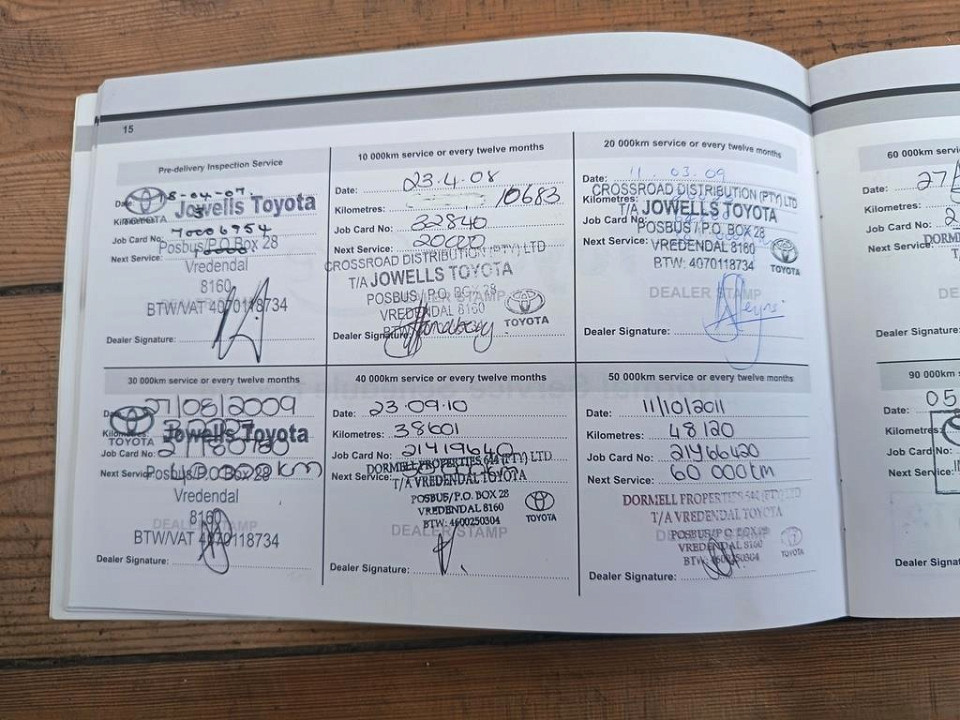 15
Pre-delivery Inspection Service
Jowells Toyota
TOYOTA
Job Card No:
Next Service:
Posbus/P.O. Box 28
Vredendal
8160
BTW/VAT 4070118734
Dealer Signature:
10 000km service or every twelve months
Date: 23.4.08
Kilometres: 10683
Job Card No: 32840
Next Service: 20000
CROSSROAD DISTRIBUTION (PTY) LTD
T/A JOWELLS TOYOTA
POSBUS / P.O. BOX 28
VREDENDAL 8160
TOYOTA
Dealer Signature:
20 000km service or every twelve months
Date: 11.03.09
CROSSROAD DISTRIBUTION (PTY) LTD
Kilometres:
T/A JOWELLS TOYOTA
Job Card No:
POSBUS / P.O. BOX 28
Next Service:
VREDENDAL 8160
BTW: 4070118734
TOYOTA
DEALER STAMP
Dealer Signature:
30 000km service or every twelve months
27/08/2009
Jowells Toyota
TOYOTA
Job Card No:
Next Service:
Posbus/P.O. Box 28
Vredendal
8160
DEALER STAMP
BTW/VAT 4070118734
Dealer Signature:
40 000km service or every twelve months
Date: 23.09.10
Kilometres: 38601
Job Card No: 21419640
DORMELL PROPERTIES (PTY) LTD
Next Service:
T/A VREDENDAL TOYOTA
POSBUS/P.O. BOX 28
VREDENDAL 8160
BTW: 4600250304
TOYOTA
DEALER STAMP
Dealer Signature:
50 000km service or every twelve months
Date: 11/10/2011
Kilometres: 48120
Job Card No: 21466420
Next Service: 60 000km
DORMELL PROPERTIES (PTY) LTD
T/A VREDENDAL TOYOTA
POSBUS/P.O. BOX 28
VREDENDAL 8160
TOYOTA
Dealer Signature:
60 000km
Date: 27/
Kilometres:
Job Card No: 2
Next Service:
Dealer Signature:
90 000km
Date: 05
Kilometres:
Job Card No:
Next Service: